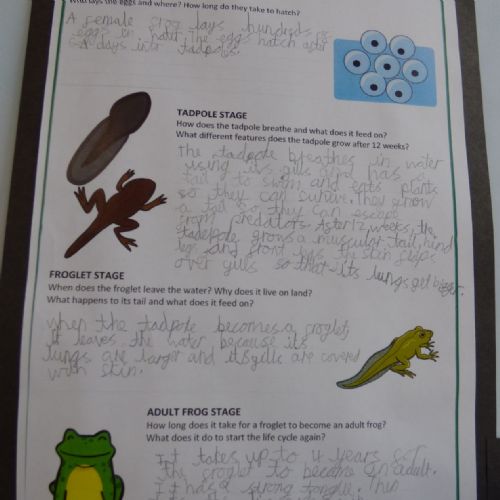 Who lays the eggs and where? How long do they take to hatch?
A female frog lays hundreds of
eggs in water. The eggs hatch after
days into tadpoles.
TADPOLE STAGE
How does the tadpole breathe and what does it feed on?
What different features does the tadpole grow after 12 weeks?
The tadpole breathes in water
using its gills and has a
tail to swim and eats plants
so they can survive. They grow
a tail so they can escape
from predators. After 12 weeks, the
tadepole grows a muscular tail, hind
legs and front legs. The skin
over gills so that its lungs get bigger.
FROGLET STAGE
When does the froglet leave the water? Why does it live on land?
What happens to its tail and what does it feed on?
when the tadpole becomes a froglet,
it leaves the water because its
lungs are larger and its gills are covered
with skin.
ADULT FROG STAGE
How long does it take for a froglet to become an adult frog?
What does it do to start the life cycle again?
It takes up to 4 years for
the froglet to become an adult.
It has a strong tongue.